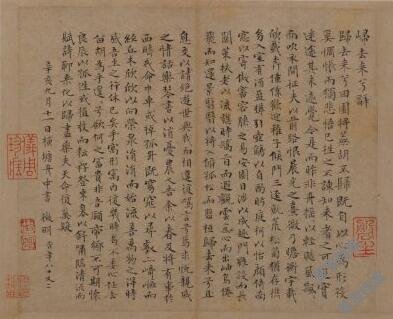 歸去來兮辭
歸去來兮田園將蕪胡不歸既自以心為形役
奚惆悵而獨悲悟已往之不諫知來者之可追實
迷途其未遠覺今是而昨非舟搖搖以輕颺風飄飄
而吹衣問征夫以前路恨晨光之熹微乃瞻衡宇載
欣載奔僮僕歡迎稚子候門三逕就荒松菊猶存携
幼入室有酒盈樽引壺觴以自酌眄庭柯以怡顏倚南
窓以寄傲審容膝之易安園日涉以成趣門雖設而長
關策扶老以流憩時矯首而遐觀雲無心而出岫鳥倦
飛而知還景翳翳以將入撫孤松而盤桓歸去來兮
息交以絕遊世與我而相遺復駕言兮焉求悅親戚
之情話樂琴書以消憂農人告余以春及將有事於
西疇或命巾車或棹孤舟既窈窕以尋壑亦崎嶇而
經丘木欣欣以向榮泉涓涓而始流善萬物之得時
感吾生之行休已矣乎寓形宇內復幾時曷不委心任去
留胡為乎遑遑兮欲何之富貴非吾願帝鄉不可期懷
良辰以孤往或植杖而耘耔登東皋以舒嘯臨清流而
賦詩聊乘化以歸盡樂夫天命復奚疑
辛亥九月十一日橫塘舟中書 徵明 年八十又二